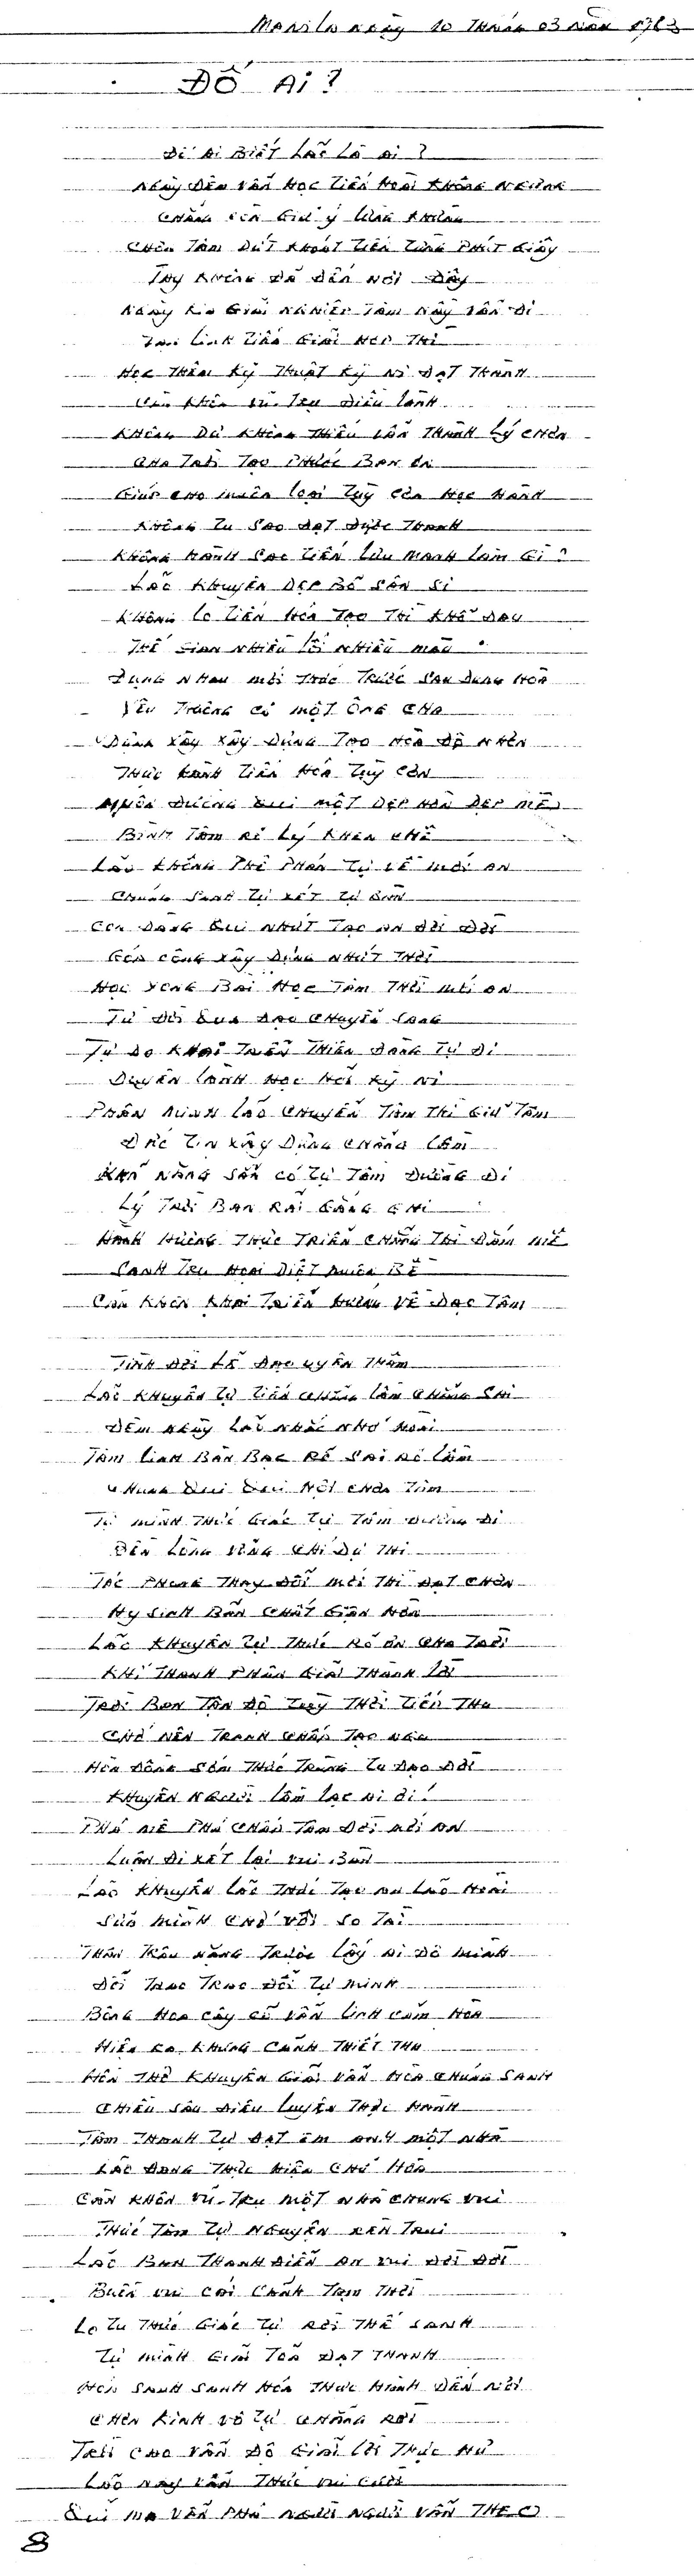 Manila ngày 10 tháng 03 năm 1983
ĐỐ Ai?
Đố Ai biết Lão là ai?
Ngày đêm vẫn học tiến hoài không ngừng
Chẳng còn giữ ý
Chơn tâm dứt khoát tiến từng phút giây
Tay không đã đến nơi đây
Ngày giải nghiên tâm nầy vẫn đi
linh tiến giải
Học thêm kỹ thuật kỳ ni đạt thành
Càn khôn vũ trụ điều lành
Không dư không thiếu vẫn thành lý chơn
Cha Trời tạo phước ban ơn
Giúp cho muôn loại tùy cơn học hành
Không tu sao đạt được thanh
Không hành sao tiến lưu manh làm gì?
Lão khuyên dẹp bỏ sân si
Không lo tiến hóa tạo thì khổ đau
Thế gian nhiều lối nhiều màu
Đụng nhau mới thức trước sau dung hòa
Yêu thương có một ông Cha
Dựng xây xây dựng tạo hòa độ nhơn
Thực hành tiến hóa tùy cơn
đường qui một dẹp hờn dẹp mê
Bình tâm rõ lý khen chê
Lão không phê phán tự về mới an
Chúng sanh tự xét tự bàn
Con đàng qui nhứt tạo an đời đời
Góp công xây dựng nhứt thời
Học xong bài học tâm thời mới an
Từ đời qua đạo chuyển sang
Tự do khai triển thiên đàng tự đi
Duyên lành học hỏi kỳ ni
Phân minh Lão chuyển tâm thì giữ tâm
Đức tin xây dựng chẳng lầm
Khả năng sẵn có tự tâm đường đi
Lý Trời ban rải càng ghi
Hành hương thực triển chẳng thì đắm mê
Sanh trụ hoại diệt muôn bề
Càn khôn khai triển hướng về đạo tâm
Tình đời lẽ đạo uyên thâm
Lão khuyên tự tiến chẳng lầm chẳng sai
Đêm ngày Lão nhắc nhở hoài
Tâm linh bàn bạc rõ sai rõ lầm
Chung qui qui hội chơn tâm
Tự mình thức giác tự tâm đường đi
Đêm thanh vắng chỉ dự thi
Tác phong thay đổi mới thì đạt chơn
Hy sinh bản chất giận hờn
Lão khuyên tự thức rõ ơn Cha Trời
Khí thanh phân giải thành lời
Trời ban tận độ tùy thời tiến thu
Chớ nên tranh chấp tạo ngu
Hòa đồng sớm thức trùng tu đạo đời
Khuyên người lầm lạc ai ơi!
Phá mê phá chấp tâm đời mới an
Luận đi xét lại vui bàn
Lão khuyên Lão thức tạo an Lão hoài
Sửa mình chớ vội so tài
Thân trâu nặng trước lấy ai độ mình
Đổi trao trao đổi tự minh
Bông hoa cây cỏ vẫn linh cảm hòa
Hiểu ra khung cảnh thiết tha
Hòa thơ khuyên giải vẫn hòa chúng sanh
Chiều sâu điều luyện thực hành
Tâm thanh tự đạt êm anh một nhà
Lão đang thực hiện chữ hòa
Càn khôn vũ trụ một nhà chung vui
Thức tâm tự nguyện rèn trui
Lão ban thanh điển an vui đời đời
Buồn vui cõi cảnh tạm thời
Lo tu thức giác tự rời thế sanh
Tự mình giải tỏa đạt thanh
Hóa sanh sanh hóa thực hành đến nơi
Chơn kinh vô tự chẳng rời
Trời cao vẫn độ giải lời thực hư
Lão nay vẫn thức vui cười
Quỉ ma vẫn phá người người vẫn theo
8